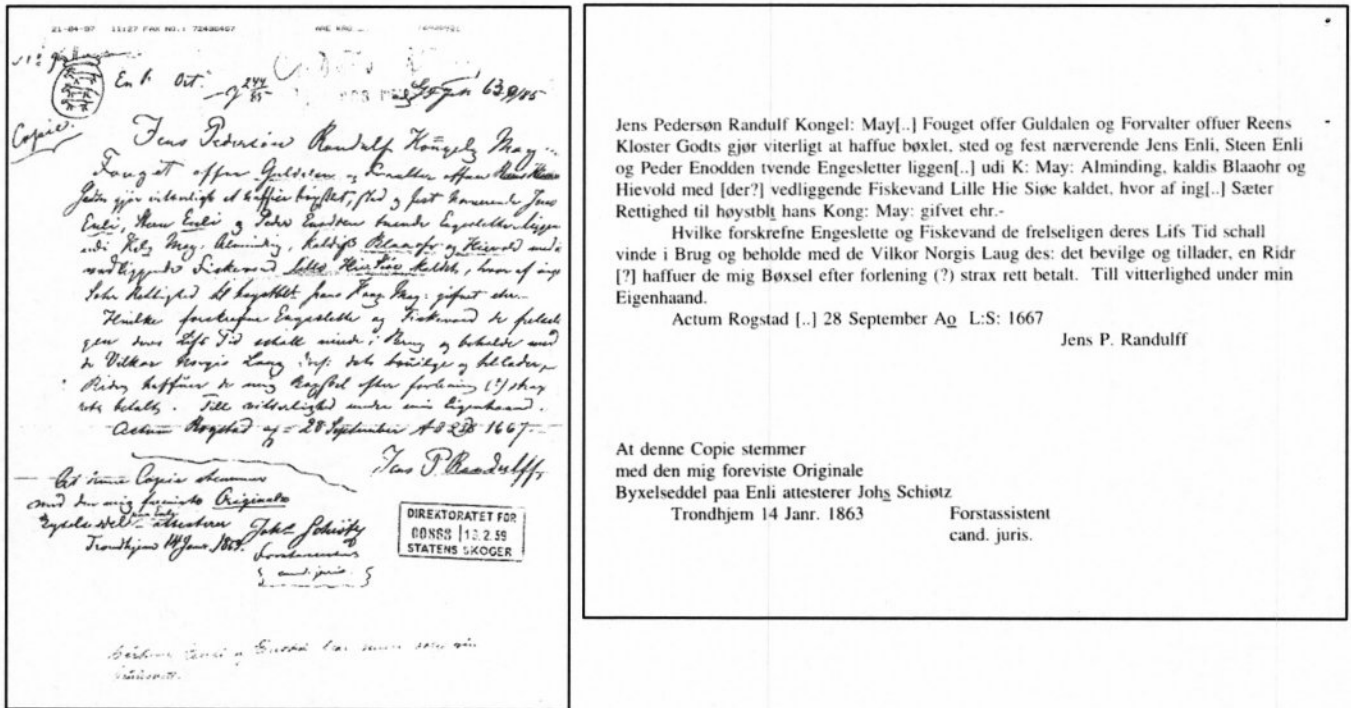 21-04-97 11:27 FAX NO.: 72430407
En Ort.
244
85
639/85
Copie.
Jens Pedersøn Randulf Kongelg May...
Fouget offer Guldalen og Forvalter offuer
Godts gjør vitterligt at haffue bøxlet, sted og fest nærverende Jens
Enli, Steen Enli og Peder Enodden tvende Engesletter liggen
udi Kelg May. Alminding, kaldis Blaaohr og Hievold med
vedliggende Fiskevand Lille Hie Siøe kaldet, hvor af ing
Sæter Rettighed til høystblt hans Kong. May: gifvet ehr.-
Hvilke forskrefne Engeslette og Fiskevand de frelseli
gen deres Lifs Tid schall vinde i Brug og beholde med
de Vilkor Norgis Laug des: det bevilge og tillader,
Ridr haffuer de mig Bøxsel efter forlening (?) strax
rett betalt. Till vitterlighed under min Eigenhaand.
Actum Rogstad 28 September Ao 1667.
Jens P. Randulff
At denne Copie stemmer
med den mig foreviste Originale
Byxelseddel paa Enli attesterer Johs Schiøtz
Trondhjem 14 Janr. 1863. Forstassistent
cand. juris.
DIREKTORATET FOR
00868 13.2.59
STATENS SKOGER
Jens Pedersøn Randulf Kongel: May[..] Fouget offer Guldalen og Forvalter offuer Reens
Kloster Godts gjør viterligt at haffue bøxlet, sted og fest nærverende Jens Enli, Steen Enli
og Peder Enodden tvende Engesletter liggen[..] udi K: May: Alminding, kaldis Blaaohr og
Hievold med [der?] vedliggende Fiskevand Lille Hie Siøe kaldet, hvor af ing[..] Sæter
Rettighed til høystblt hans Kong: May: gifvet ehr.-
Hvilke forskrefne Engeslette og Fiskevand de frelseligen deres Lifs Tid schall
vinde i Brug og beholde med de Vilkor Norgis Laug des: det bevilge og tillader, en Ridr
[?] haffuer de mig Bøxsel efter forlening (?) strax rett betalt. Till vitterlighed under min
Eigenhaand.
Actum Rogstad [..] 28 September Ao L:S: 1667
Jens P. Randulff
At denne Copie stemmer
med den mig foreviste Originale
Byxelseddel paa Enli attesterer Johs Schiøtz
Trondhjem 14 Janr. 1863 Forstassistent
cand. juris.